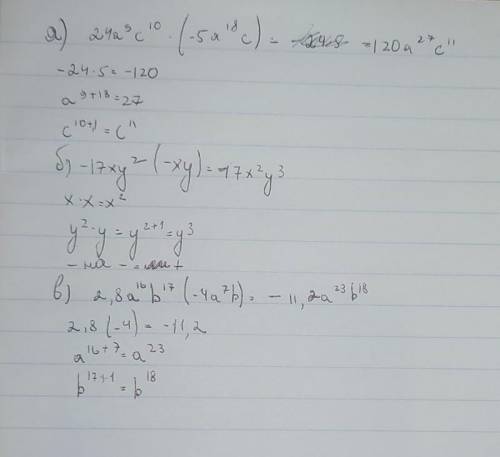 а) 24a⁹c¹⁰ · (-5a¹⁸c) = =120a²⁷c¹¹
-24·5=-120
a⁹⁺¹⁸=27
c¹⁰⁺¹=c¹¹
б) -17xy² (-xy)=17x²y³
x·x=x²
y²·y=y²⁺¹=y³
- на - = +
в) 2,8a¹⁶b¹⁷(-4a⁷b)= -11,2a²³b¹⁸
2,8(-4)=-11,2
a¹⁶⁺⁷=a²³
b¹⁷⁺¹=b¹⁸